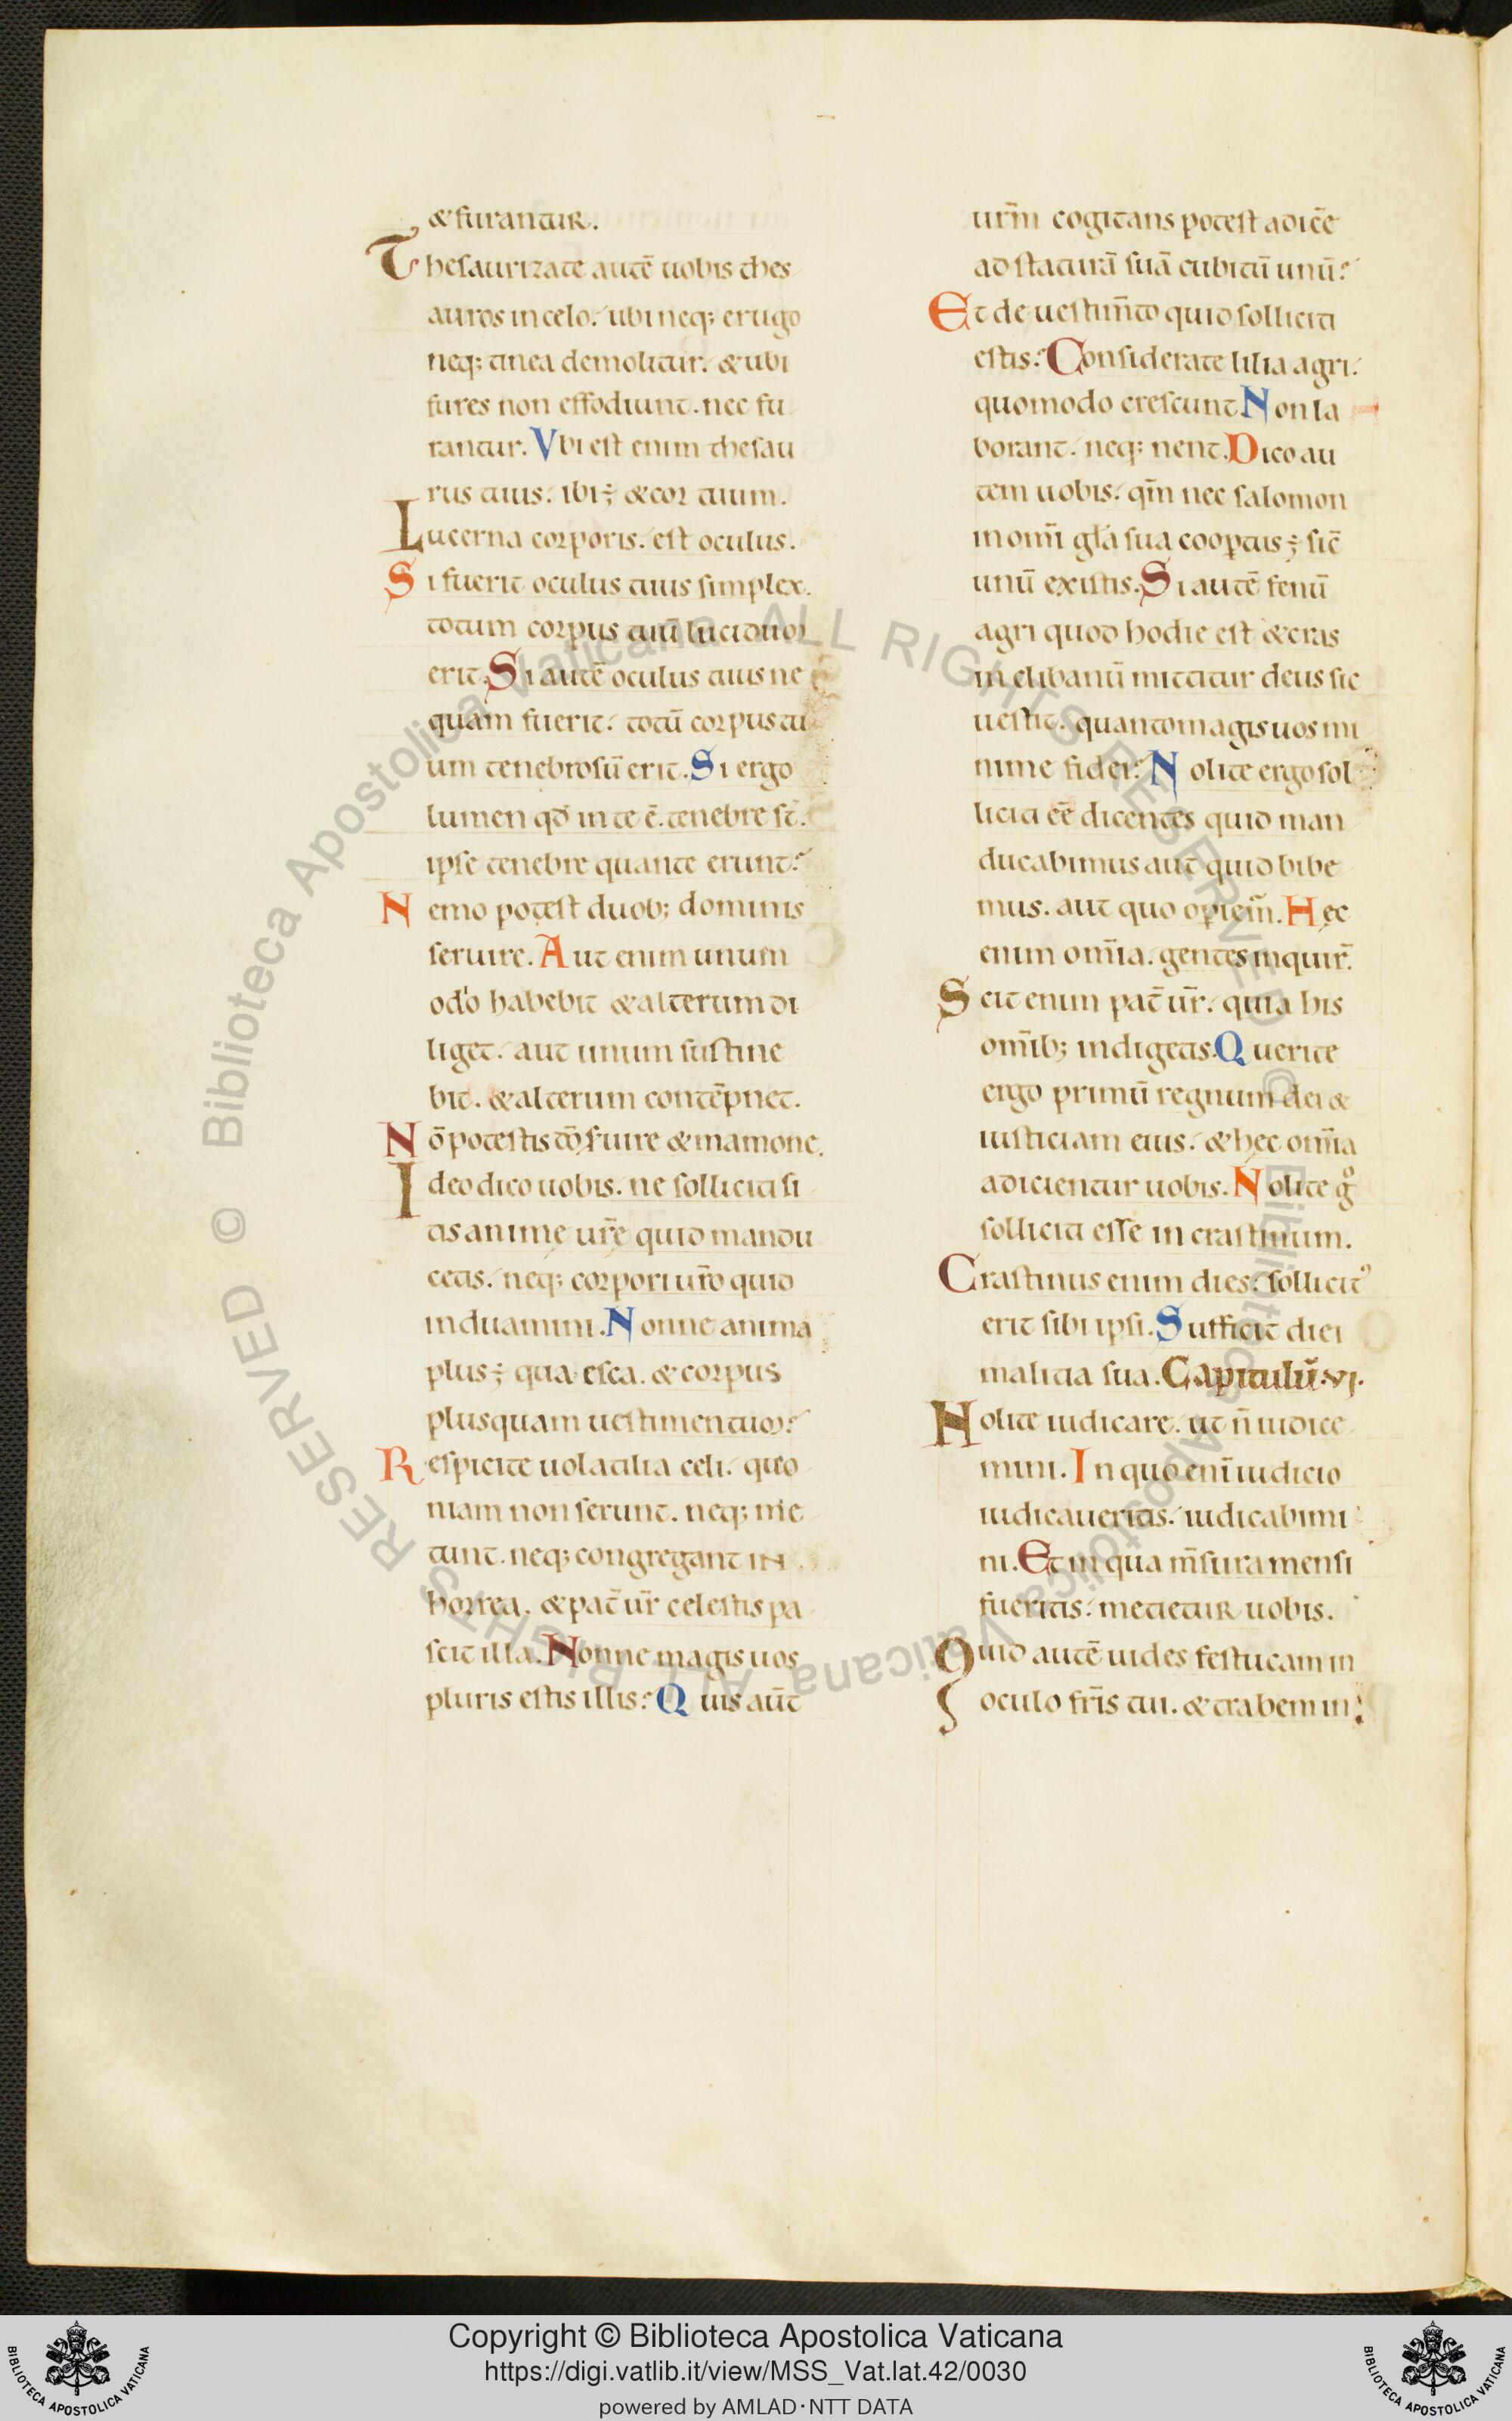 & furantur.
Thesaurizate autē uobis thes
auros in celo. ubi neq; erugo
neq; tinea demolitur. & ubi
fures non effodiunt. nec fu
rantur. Vbi est enim thesau
rus tuus. ibi ÷ & cor tuum.
Lucerna corporis. est oculus.
Si fuerit oculus tuus simplex.
totum corpus tuū lucidum
erit. Si autē oculus tuus ne
quam fuerit. totū corpus tu
um tenebrosū erit. Si ergo
lumen qđ in te ē. tenebre st̄.
ipse tenebre quante erunt?
Nemo potest duob; dominis
seruire. Aut enim unum
odio habebit & alterum di
liget. aut unum sustine
bit. & alterum contēpnet.
Nō potestis dō seruire & mamone.
Ideo dico uobis. ne solliciti si
tis anime ur̄e quid mandu
cetis. neq; corpori ur̄o quid
induamini. Nonne anima
plus ÷ qua esca. & corpus
plusquam uestimentum?
Respicite uolatilia celi. quo
niam non serunt. neq; me
tunt. neq; congregant in
horrea. & pat̄ ur̄ celestis pa
scit illa. Nonne magis uos
pluris estis illis? Quis aūt
ur̄m cogitans potest adicē
ad staturā suā cubitū unū?
Et de uestim̄to quid solliciti
estis? Considerate lilia agri.
quomodo crescunt Non la
borant. neq; nent. Dico au
tem uobis. qm̄ nec salomon
in om̄i gl̄a sua coopertus ÷ sic̄
unū ex istis. Si autē fenū
agri quod hodie est & cras
in clibanū mittitur deus sic
uestit. quantomagis uos mi
nime fidei? Nolite ergo sol
liciti eē dicentes quid man
ducabimus aut quid bibe
mus. aut quo operiem̄. Hec
enim om̄ia. gentes inquir̄.
Scit enim pat̄ ur̄. quia his
om̄ib; indigetis. Querite
ergo primū regnum dei &
iusticiam eius. & hec om̄ia
adicientur uobis. Nolite gͦ
solliciti esse in crastinum.
Crastinus enim dies. sollicitꝰ
erit sibi ipsi. Sufficit diei
malitia sua. Capitulū. vi.
Nolite iudicare. ut n̄ iudice
mini. In quo enī iudicio
iudicaueritis. iudicabimi
ni. Et in qua m̄sura mensi
fueritis. metietur uobis.
Quid autē uides festucam in
oculo fr̄is tui. & trabem in
Copyright © Biblioteca Apostolica Vaticana
https://digi.vatlib.it/view/MSS_Vat.lat.42/0030
powered by AMLAD · NTT DATA
© Biblioteca Apostolica Vaticana ALL RIGHTS RESERVED
© Biblioteca Apostolica Vaticana ALL RIGHTS RESERVED
BIBLIOTECA APOSTOLICA VATICANA
BIBLIOTECA APOSTOLICA VATICANA